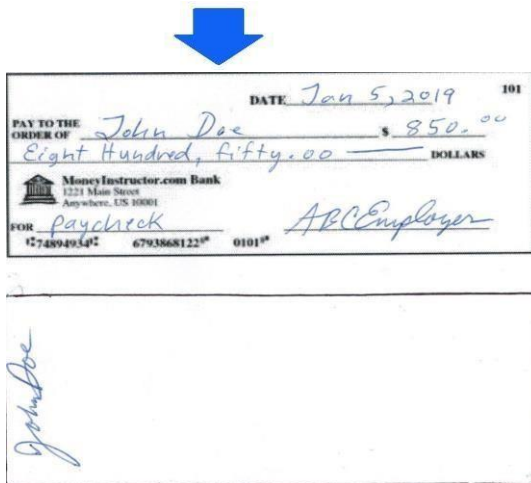 101
DATE Jan 5, 2019
PAY TO THE
ORDER OF John Doe $ 850.00
Eight Hundred, fifty.00 DOLLARS
MoneyInstructor.com Bank
1221 Main Street
Anywhere, US 10001
FOR Paycheck ABC Employer
⑆74894934⑆ 6793868122⑈ 0101⑈
John Doe